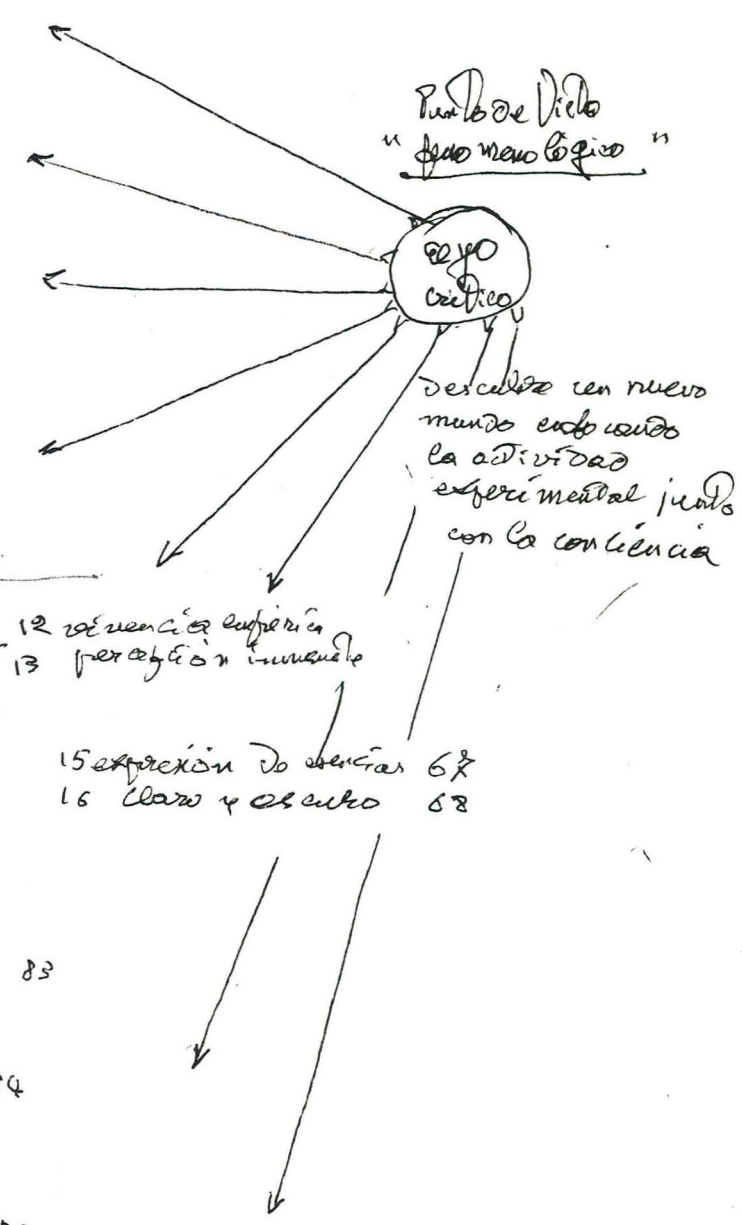 Punto de Vista
"fenomenológico"
el yo
crítico
Descubre un nuevo
mundo enfocando
la actividad
experimental junto
con la conciencia
12 vivencia empírica
13 percepción inmanente
15 expresión de esencias 67
16 claro y oscuro 68
83
4